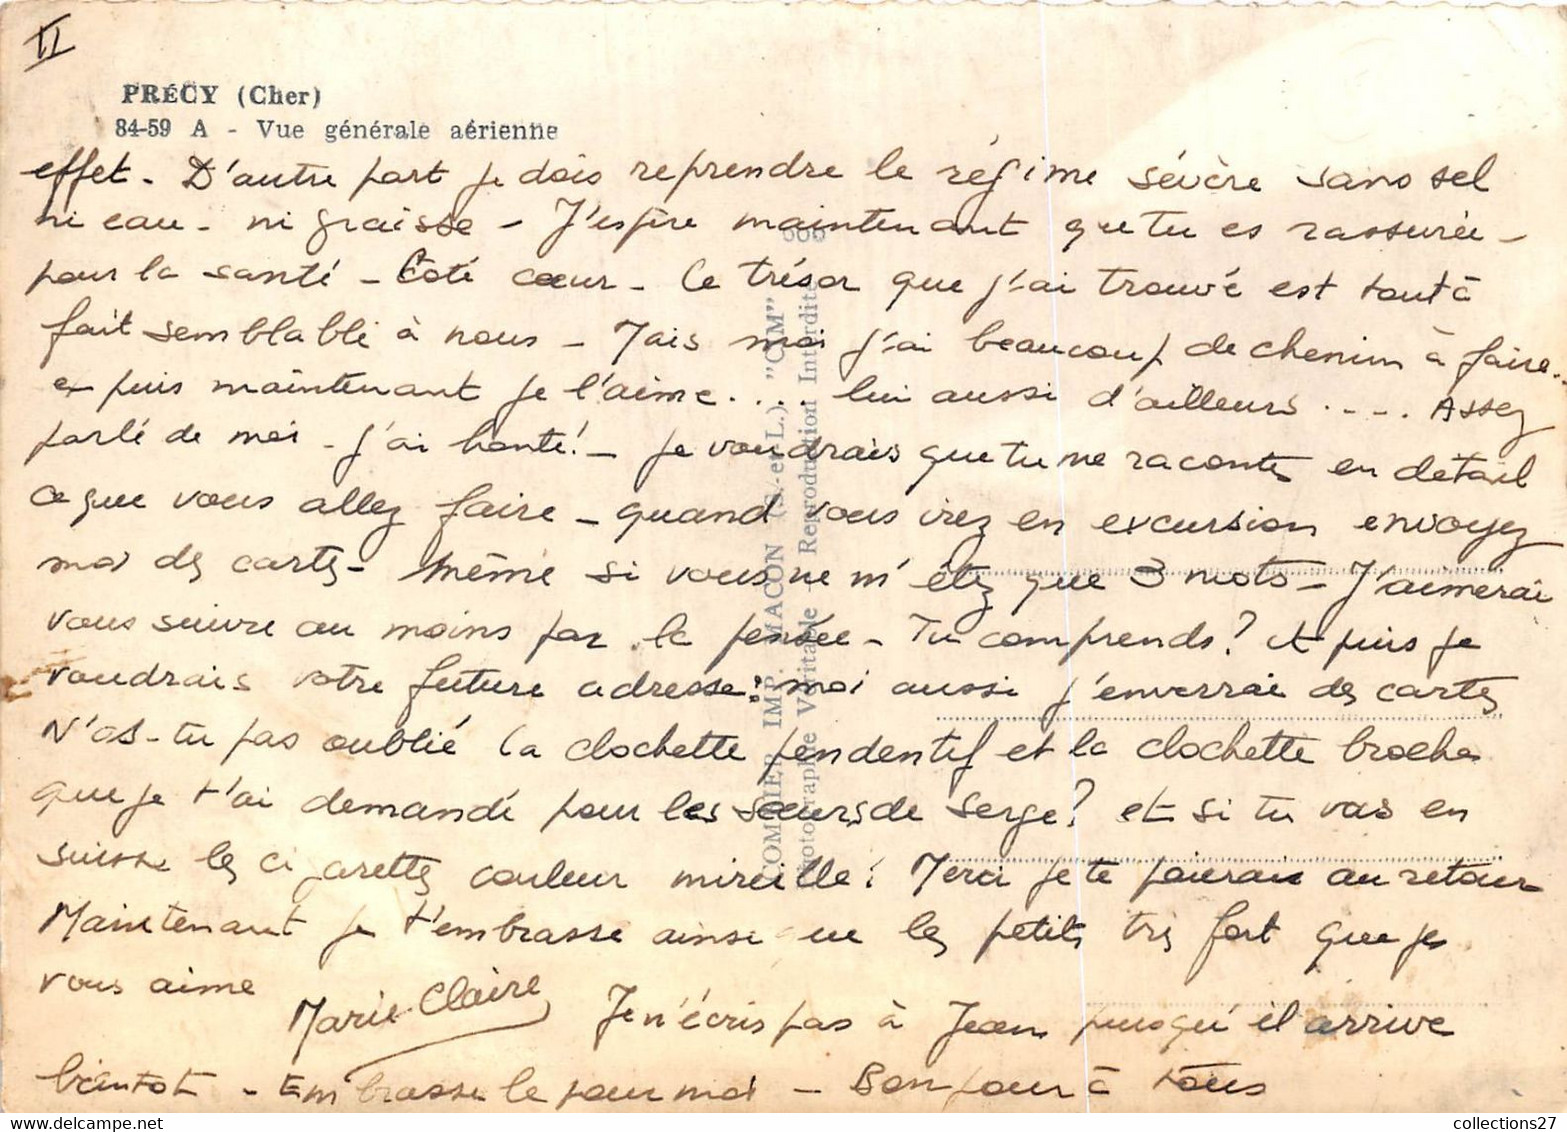 II
PRÉCY (Cher)
84-59 A - Vue générale aérienne
effet - D'autre part je dois reprendre le régime sévère sans sel
ni eau - ni graisse - J'espère maintenant que tu es rassurée -
pour la santé - Côté cœur - Ce trésor que j'ai trouvé est tout à
fait semblable à nous - Mais moi j'ai beaucoup de chemin à faire..
et puis maintenant je l'aime... lui aussi d'ailleurs .... Assez
parlé de moi - j'ai honte! - Je voudrais que tu me racontes en détail
ce que vous allez faire - quand vous irez en excursion envoyez
moi des cartes - Même si vous ne m'étez que 3 mots - J'aimerai
vous suivre au moins par la pensée - Tu comprends? et puis je
voudrais votre future adresse: moi aussi j'enverrai des cartes
N'as-tu pas oublié la clochette pendentif et la clochette broche
que je t'ai demandé pour les sœurs de Serge? et si tu vas en
suisse les cigarettes couleur mireille! Merci je te paierai au retour
Maintenant je t'embrasse ainsi que les petits très fort que je
vous aime
Marie-Claire
Je n'écris pas à Jean puisqu'il arrive
bientot - Embrasse le pour moi - Bonjour à tous
COMBIER IMP. MACON (S.-et-L.) "CIM"
Photographie Véritable - Reproduction Interdite
collections27